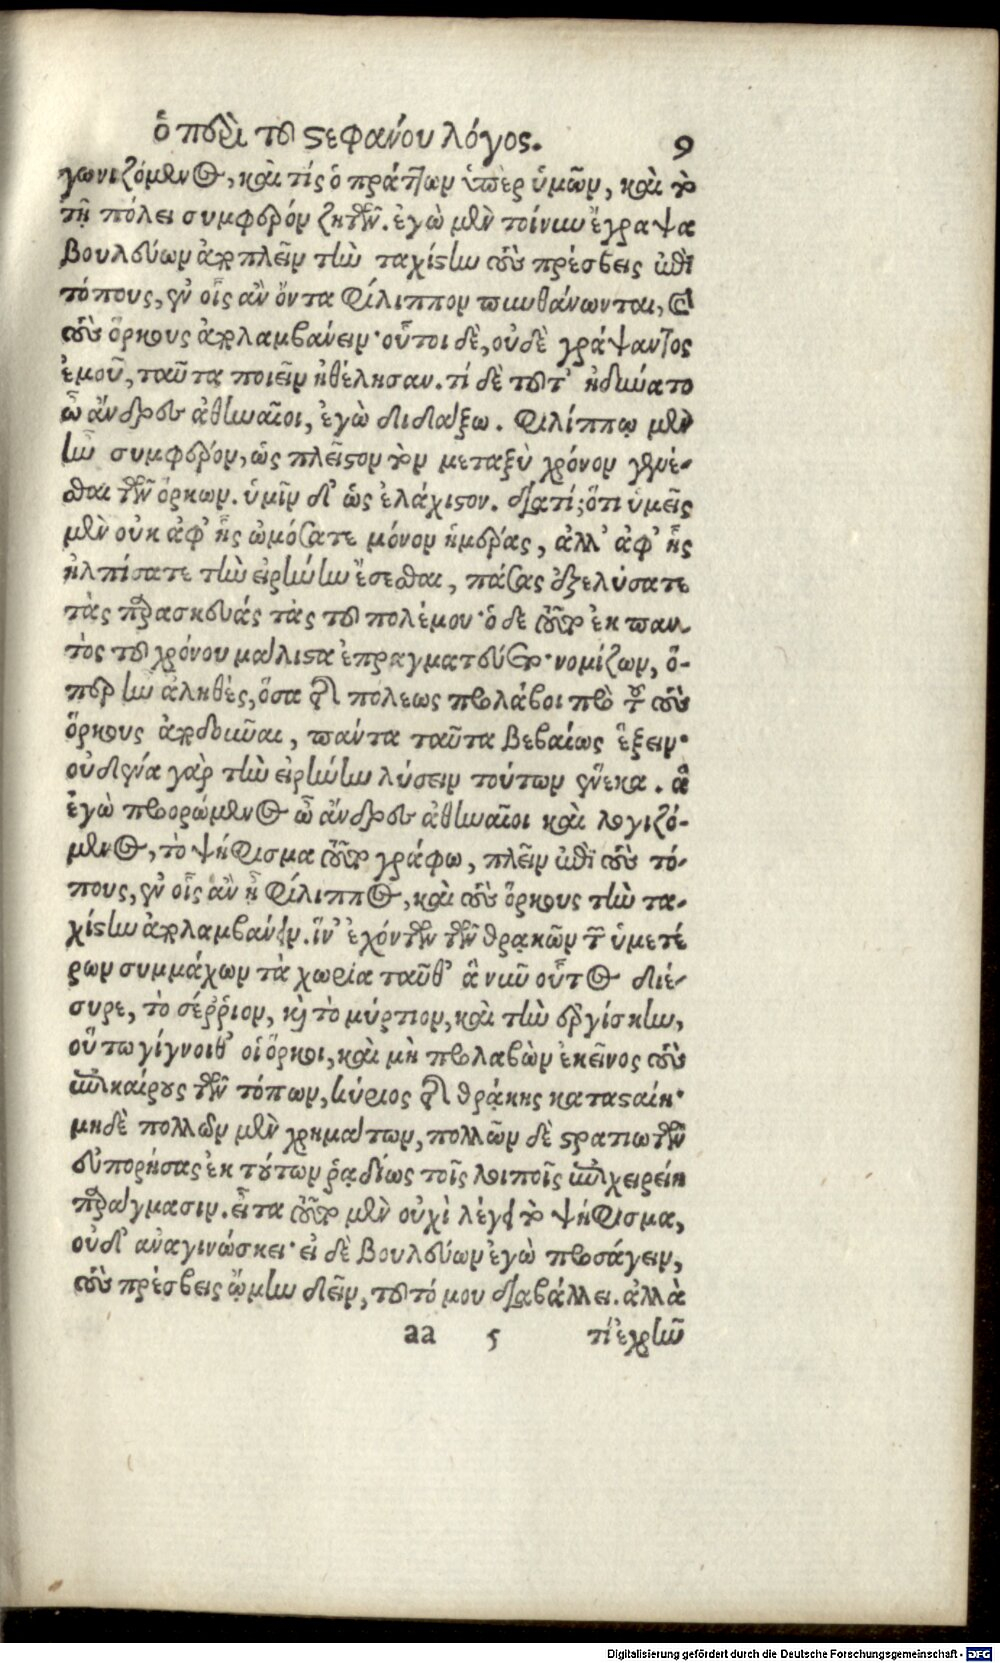 ὁ περὶ τοῦ στεφάνου λόγος. 9
γωνιζόμενος, καὶ τίς ὁ πράττων ὑπὲρ ὑμῶν, καὶ τὸ
τῇ πόλει συμφέρον ζητῶν. ἐγὼ μὲν τοίνυν ἔγραψα
βουλεύων ἀποπλεῖν τὴν ταχίστην τοὺς πρέσβεις ἐπὶ
τόπους, ἐν οἷς ἂν ὄντα Φίλιππον πυνθάνωνται, καὶ
τοὺς ὅρκους ἀπολαμβάνειν· οὗτοι δὲ, οὐδὲ γράψαντος
ἐμοῦ, ταῦτα ποιεῖν ἠθέλησαν. τί δὲ τοῦτ' ἠδύνατο
ὦ ἄνδρες ἀθηναῖοι, ἐγὼ διδάξω. Φιλίππῳ μὲν
ἦν συμφέρον, ὡς πλεῖστον τὸν μεταξὺ χρόνον γενέ-
σθαι τῶν ὅρκων. ὑμῖν δ' ὡς ἐλάχιστον. διατί; ὅτι ὑμεῖς
μὲν οὐκ ἀφ' ἧς ὠμόσατε μόνον ἡμέρας, ἀλλ' ἀφ' ἧς
ἠλπίσατε τὴν εἰρήνην ἔσεσθαι, πάσας ἐξελύσατε
τὰς παρασκευάς τὰς τοῦ πολέμου· ὁ δὲ τοῦτο ἐκ παν-
τὸς τοῦ χρόνου μάλιστα ἐπραγματεύετο· νομίζων, ὅ-
περ ἦν ἀληθὲς, ὅσα τῆς πόλεως προλάβοι πρὸ τοῦ τοὺς
ὅρκους ἀποδοῦναι, πάντα ταῦτα βεβαίως ἕξειν·
οὐδένα γὰρ τὴν εἰρήνην λύσειν τούτων ἕνεκα. ἃ
ἐγὼ προορώμενος ὦ ἄνδρες ἀθηναῖοι καὶ λογιζό-
μενος, τὸ ψήφισμα τοῦτο γράφω, πλεῖν ἐπὶ τοὺς τό-
πους, ἐν οἷς ἂν ᾖ Φίλιππος, καὶ τοὺς ὅρκους τὴν τα-
χίστην ἀπολαμβάνειν. ἵν' ἐχόντων τῶν θρᾳκῶν τῶν ὑμετέ
ρων συμμάχων τὰ χωρία ταῦθ' ἃ νῦν οὗτος διέ-
συρε, τὸ σέῤῥιον, καὶ τὸ μύρτιον, καὶ τὴν ἐργίσκην,
οὕτω γίγνοιθ' οἱ ὅρκοι, καὶ μὴ προλαβὼν ἐκεῖνος τοὺς
ἐπικαίρους τῶν τόπων, κύριος τῆς θρᾴκης κατασταίη·
μηδὲ πολλῶν μὲν χρημάτων, πολλῶν δὲ στρατιωτῶν
εὐπορήσας ἐκ τούτων ῥᾳδίως τοῖς λοιποῖς ἐπιχειρείη
πράγμασιν. εἶτα τοῦτο μὲν οὐχὶ λέγει τὸ ψήφισμα,
οὐδ' ἀναγινώσκει· εἰ δὲ βουλεύων ἐγὼ προσάγειν,
τοὺς πρέσβεις ᾤμην δεῖν, τοῦτό μου διαβάλλει. ἀλλὰ
aa 5 τί ἐχρῆν
Digitalisierung gefördert durch die Deutsche Forschungsgemeinschaft - DFG